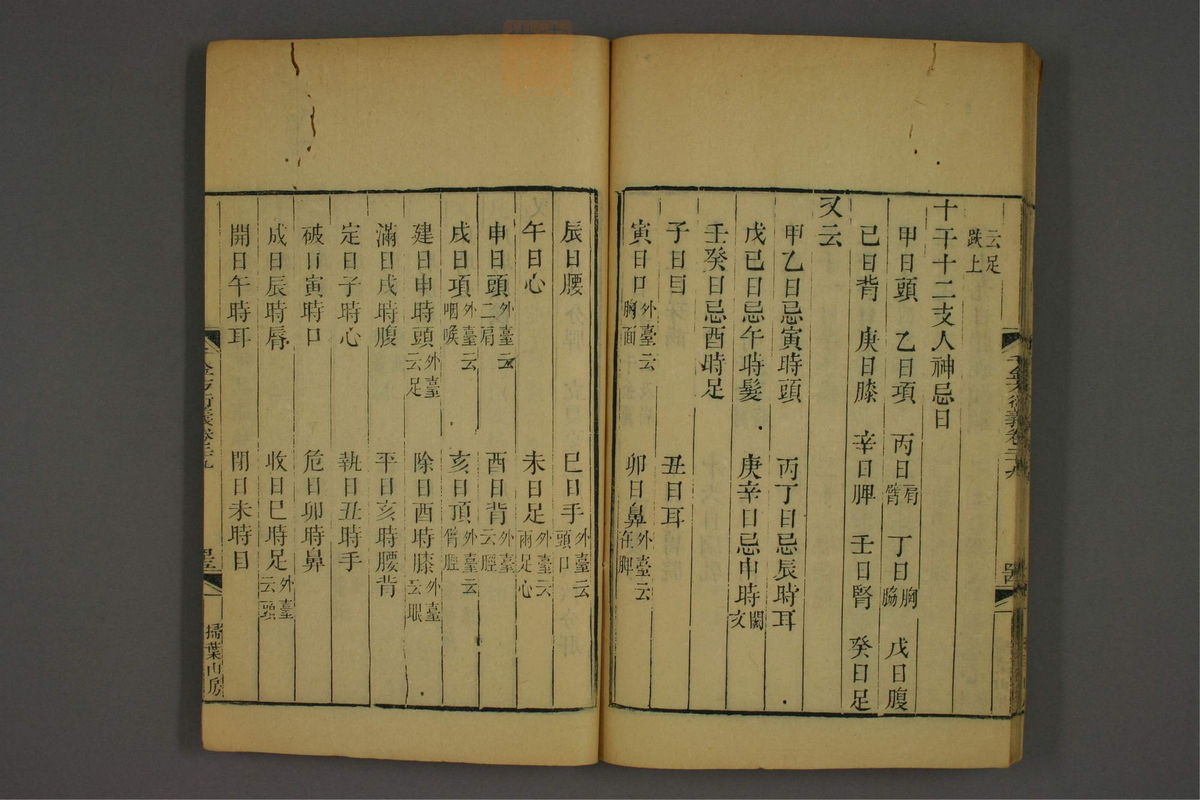 云足
趺上
十干十二支人神忌日
甲日頭 乙日項 丙日肩臂 丁日胸脇 戊日腹
己日背 庚日膝 辛日脾 壬日腎 癸日足
又云
甲乙日忌寅時頭 丙丁日忌辰時耳
戊己日忌午時髮 庚辛日忌申時闕文
壬癸日忌酉時足
子日目 丑日耳
寅日口外臺云胸面 卯日鼻外臺云在脾
辰日腰 巳日手外臺云頭口
午日心 未日足外臺云兩足心
申日頭外臺云二肩 酉日背外臺云脛
戌日項外臺云咽喉 亥日頂外臺云臂脛
建日申時頭外臺云足 除日酉時膝外臺云眼
滿日戌時腹 平日亥時腰背
定日子時心 執日丑時手
破日寅時口 危日卯時鼻
成日辰時脣 收日巳時足外臺云頭
開日午時耳 閉日未時目
千金方衍義卷二十九
掃葉山房